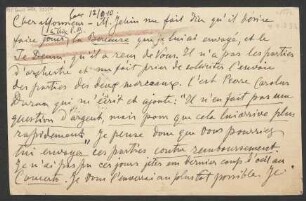 Cher Monsieur - M. Jehin me fait dire qu'il désire
faire jouer la Berceuse que je lui ai envoyé, et le
Te Deum qu'il a reçu de Vous. Il n'a pas les parties
d'orchestre et me fait prier de solliciter l'envoie
des parties des deux morceaux. C'est Pierre Carolus
Duran qui m'écrit et ajoute: "Il n'en fait pas une
question d'argent, mais pour que cela lui arrive plus
rapidement." Je pense donc que Vous pourriez
lui envoyer ces parties contre remboursement.
Je n'ai pas pu ces jours jeter un dernier coup d'oeil au
Concerto. Je Vous l'enverrai au plustôt possible. Je